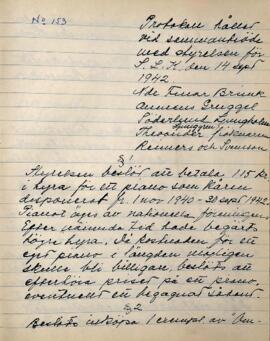 No 153
Protokoll hållet
vid sammanträde
med styrelsen för
S.L.K. den 14 sept
1942
Nde Einar Brunk
Gruggel
Söderlund Ljungholm
Ljunggren
Theorinder
Reimers och Svensson
§ 1
Styrelsen beslöt att betala 115 kr
i hyra för ett piano som kåren
disponerat fr. 1 nov 1940 - 20 sept 1942.
Pianot äges av nationella föreningen.
Efter nämnda tid hade begärts
högre hyra. Då kostnaden för en
eget piano i längden möjligen
skulle bli billigare, beslöts att
efterhöra priset på ett piano
eventuellt en begagnat sådant.
§ 2
Beslöts inköpa 1 exempl. av